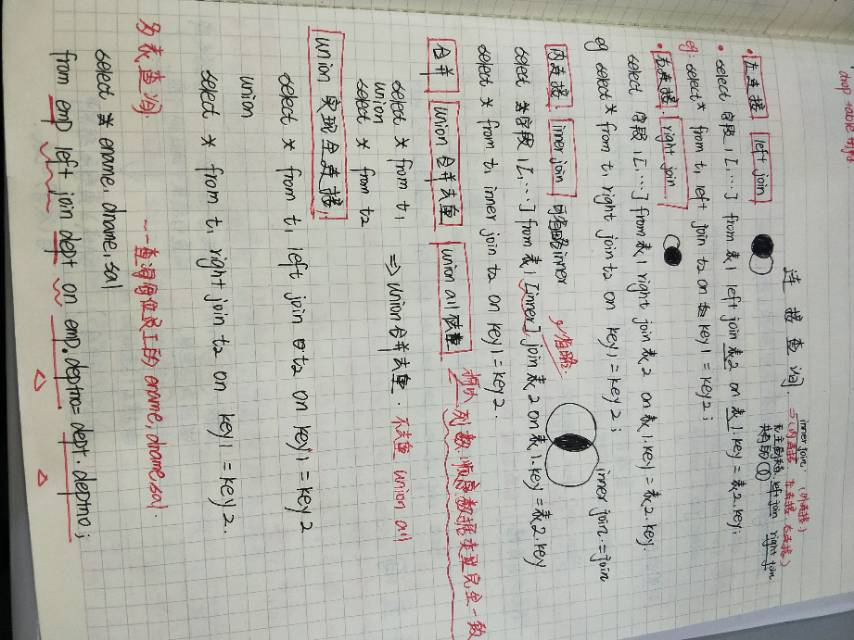 drop table
连接查询.
inner join. (外连接)
=>(内连接 左连接 右连接)
left join right join
• 左连接 left join
• select 字段1[,...] from 表1 left join 表2 on 表1.key = 表2.key;
eg: select * from t1 left join t2 on key1 = key2;
• 右连接. right join
select 字段1[,...] from 表1 right join 表2 on 表1.key = 表2.key.
eg select * from t1 right join t2 on key1 = key2;
内连接. inner join 可省略inner
inner join. = join
可省略.
select 字段1[,...] from 表1 [inner] join 表2 on 表1.key = 表2.key
select * from t1 inner join t2 on key1 = key2.
合并 union 合并去重 union all
列数,顺序数据类型完全一致
select * from t1
union
select * from t2
=> union 合并去重. 不去重 union all
union 实现全连接,
select * from t1 left join t2 on key1 = key2
union
select * from t1 right join t2 on key1 = key2.
多表查询. --查询每位员工的 ename, dname, sal.
select ename, dname, sal
from emp left join dept on emp.deptno = dept.deptno;